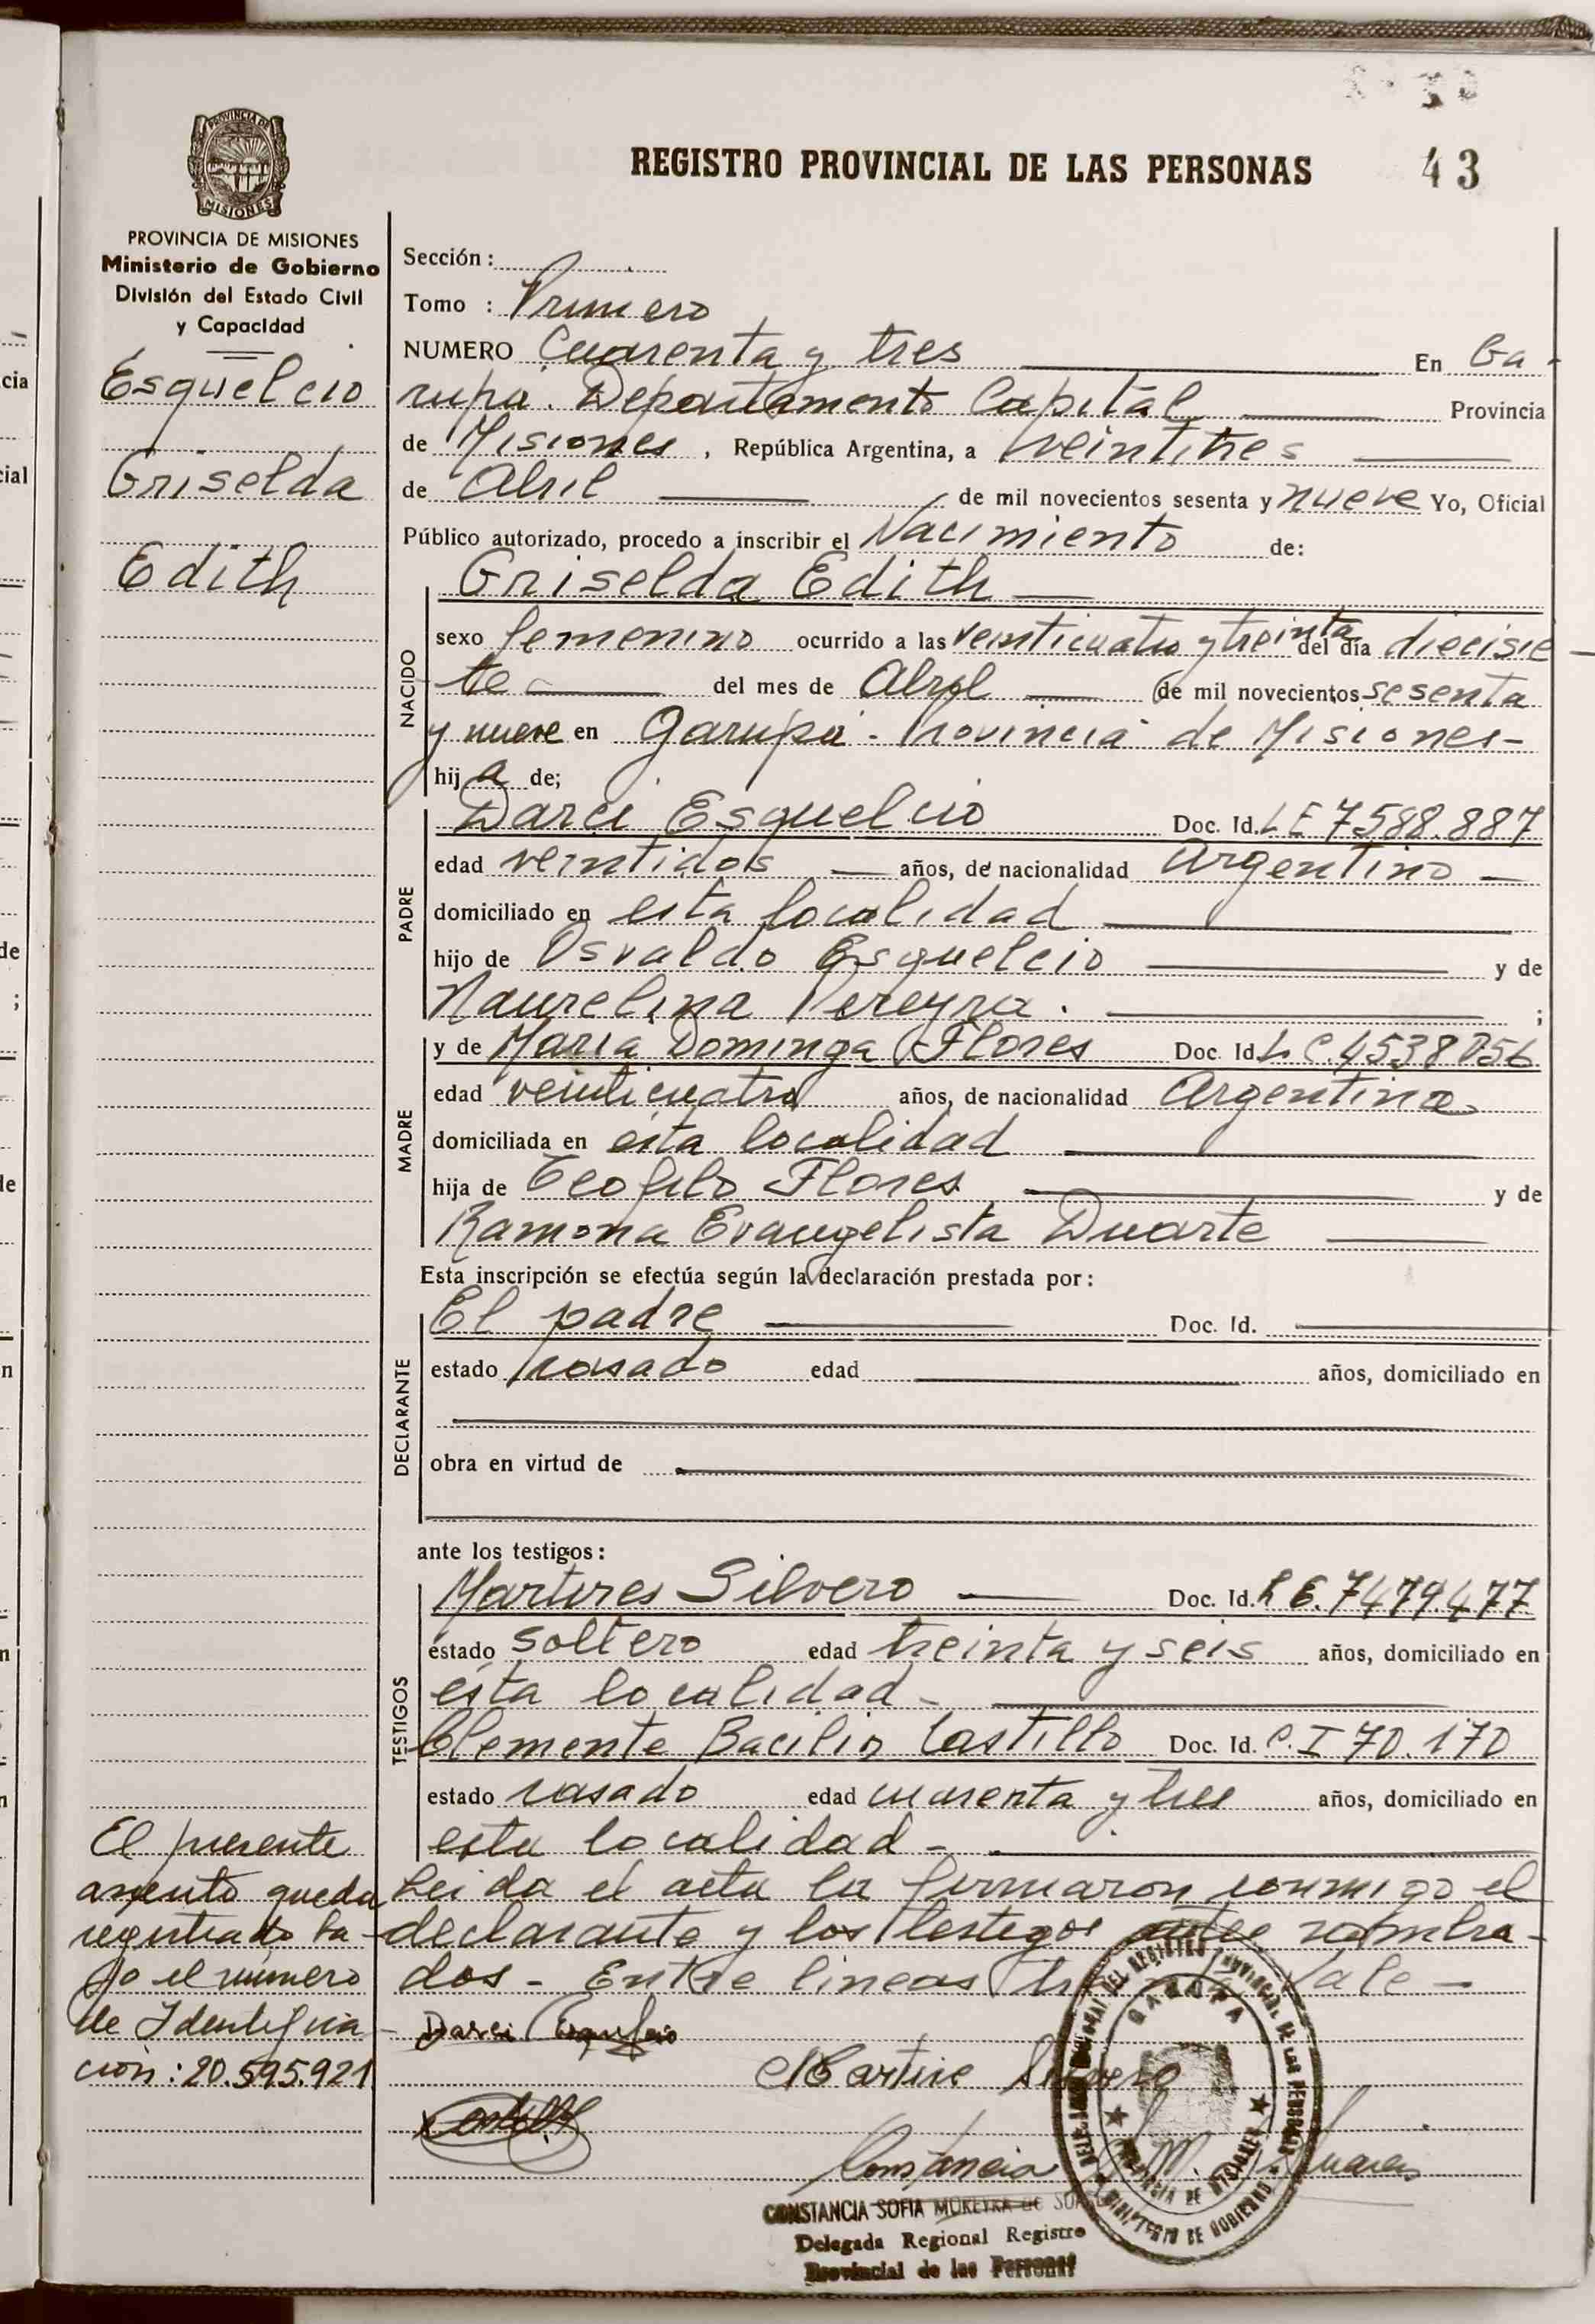 REGISTRO PROVINCIAL DE LAS PERSONAS 43
PROVINCIA DE
MISIONES
PROVINCIA DE MISIONES
Ministerio de Gobierno
División del Estado Civil
y Capacidad
Esquelcio
Griselda
Edith
Sección:
Tomo : Primero
NUMERO Cuarenta y tres En Ga-
rupá. Departamento Capital Provincia
de Misiones, República Argentina, a veintitres
de Abril de mil novecientos sesenta y nueve Yo, Oficial
Público autorizado, procedo a inscribir el Nacimiento de:
Griselda Edith
NACIDO
sexo femenino ocurrido a las veinticuatro y treinta del día diecisie-
te del mes de Abril de mil novecientos sesenta
y nueve en Garupá - Provincia de Misiones-
hija de;
PADRE
Darci Esquelcio Doc. Id. LE 7588.887
edad veintidos años, de nacionalidad Argentino
domiciliado en esta localidad
hijo de Osvaldo Esquelcio y de
Naurelina Pereyra. ;
MADRE
y de Maria Dominga Flores Doc. Id. L C. 4538056
edad veinticuatro años, de nacionalidad Argentina
domiciliada en esta localidad
hija de Teofilo Flores y de
Ramona Evangelista Duarte
Esta inscripción se efectúa según la declaración prestada por:
DECLARANTE
El padre Doc. Id.
estado casado edad años, domiciliado en
obra en virtud de
ante los testigos:
TESTIGOS
Martires Silvero Doc. Id. L E. 7479.477
estado soltero edad treinta y seis años, domiciliado en
esta localidad-
Clemente Bacilio Castillo Doc. Id. C. I 70.170
estado casado edad cuarenta y tres años, domiciliado en
esta localidad-
Leida el acta la firmaron conmigo el
declarante y los testigos antes nombra-
dos - Entre lineas Vale-
El presente
asento queda
registrado ba-
jo el número
de Identifica-
ción: 20.595.921
Darci Esquelcio
Martire Silvero
Castillo
Constancia M. Suares
CONSTANCIA SOFIA MOREYRA de
Delegada Regional Registro
Provincial de las Personas
GARUPA
PROVINCIA DE MISIONES
MINISTERIO DE GOBIERNO